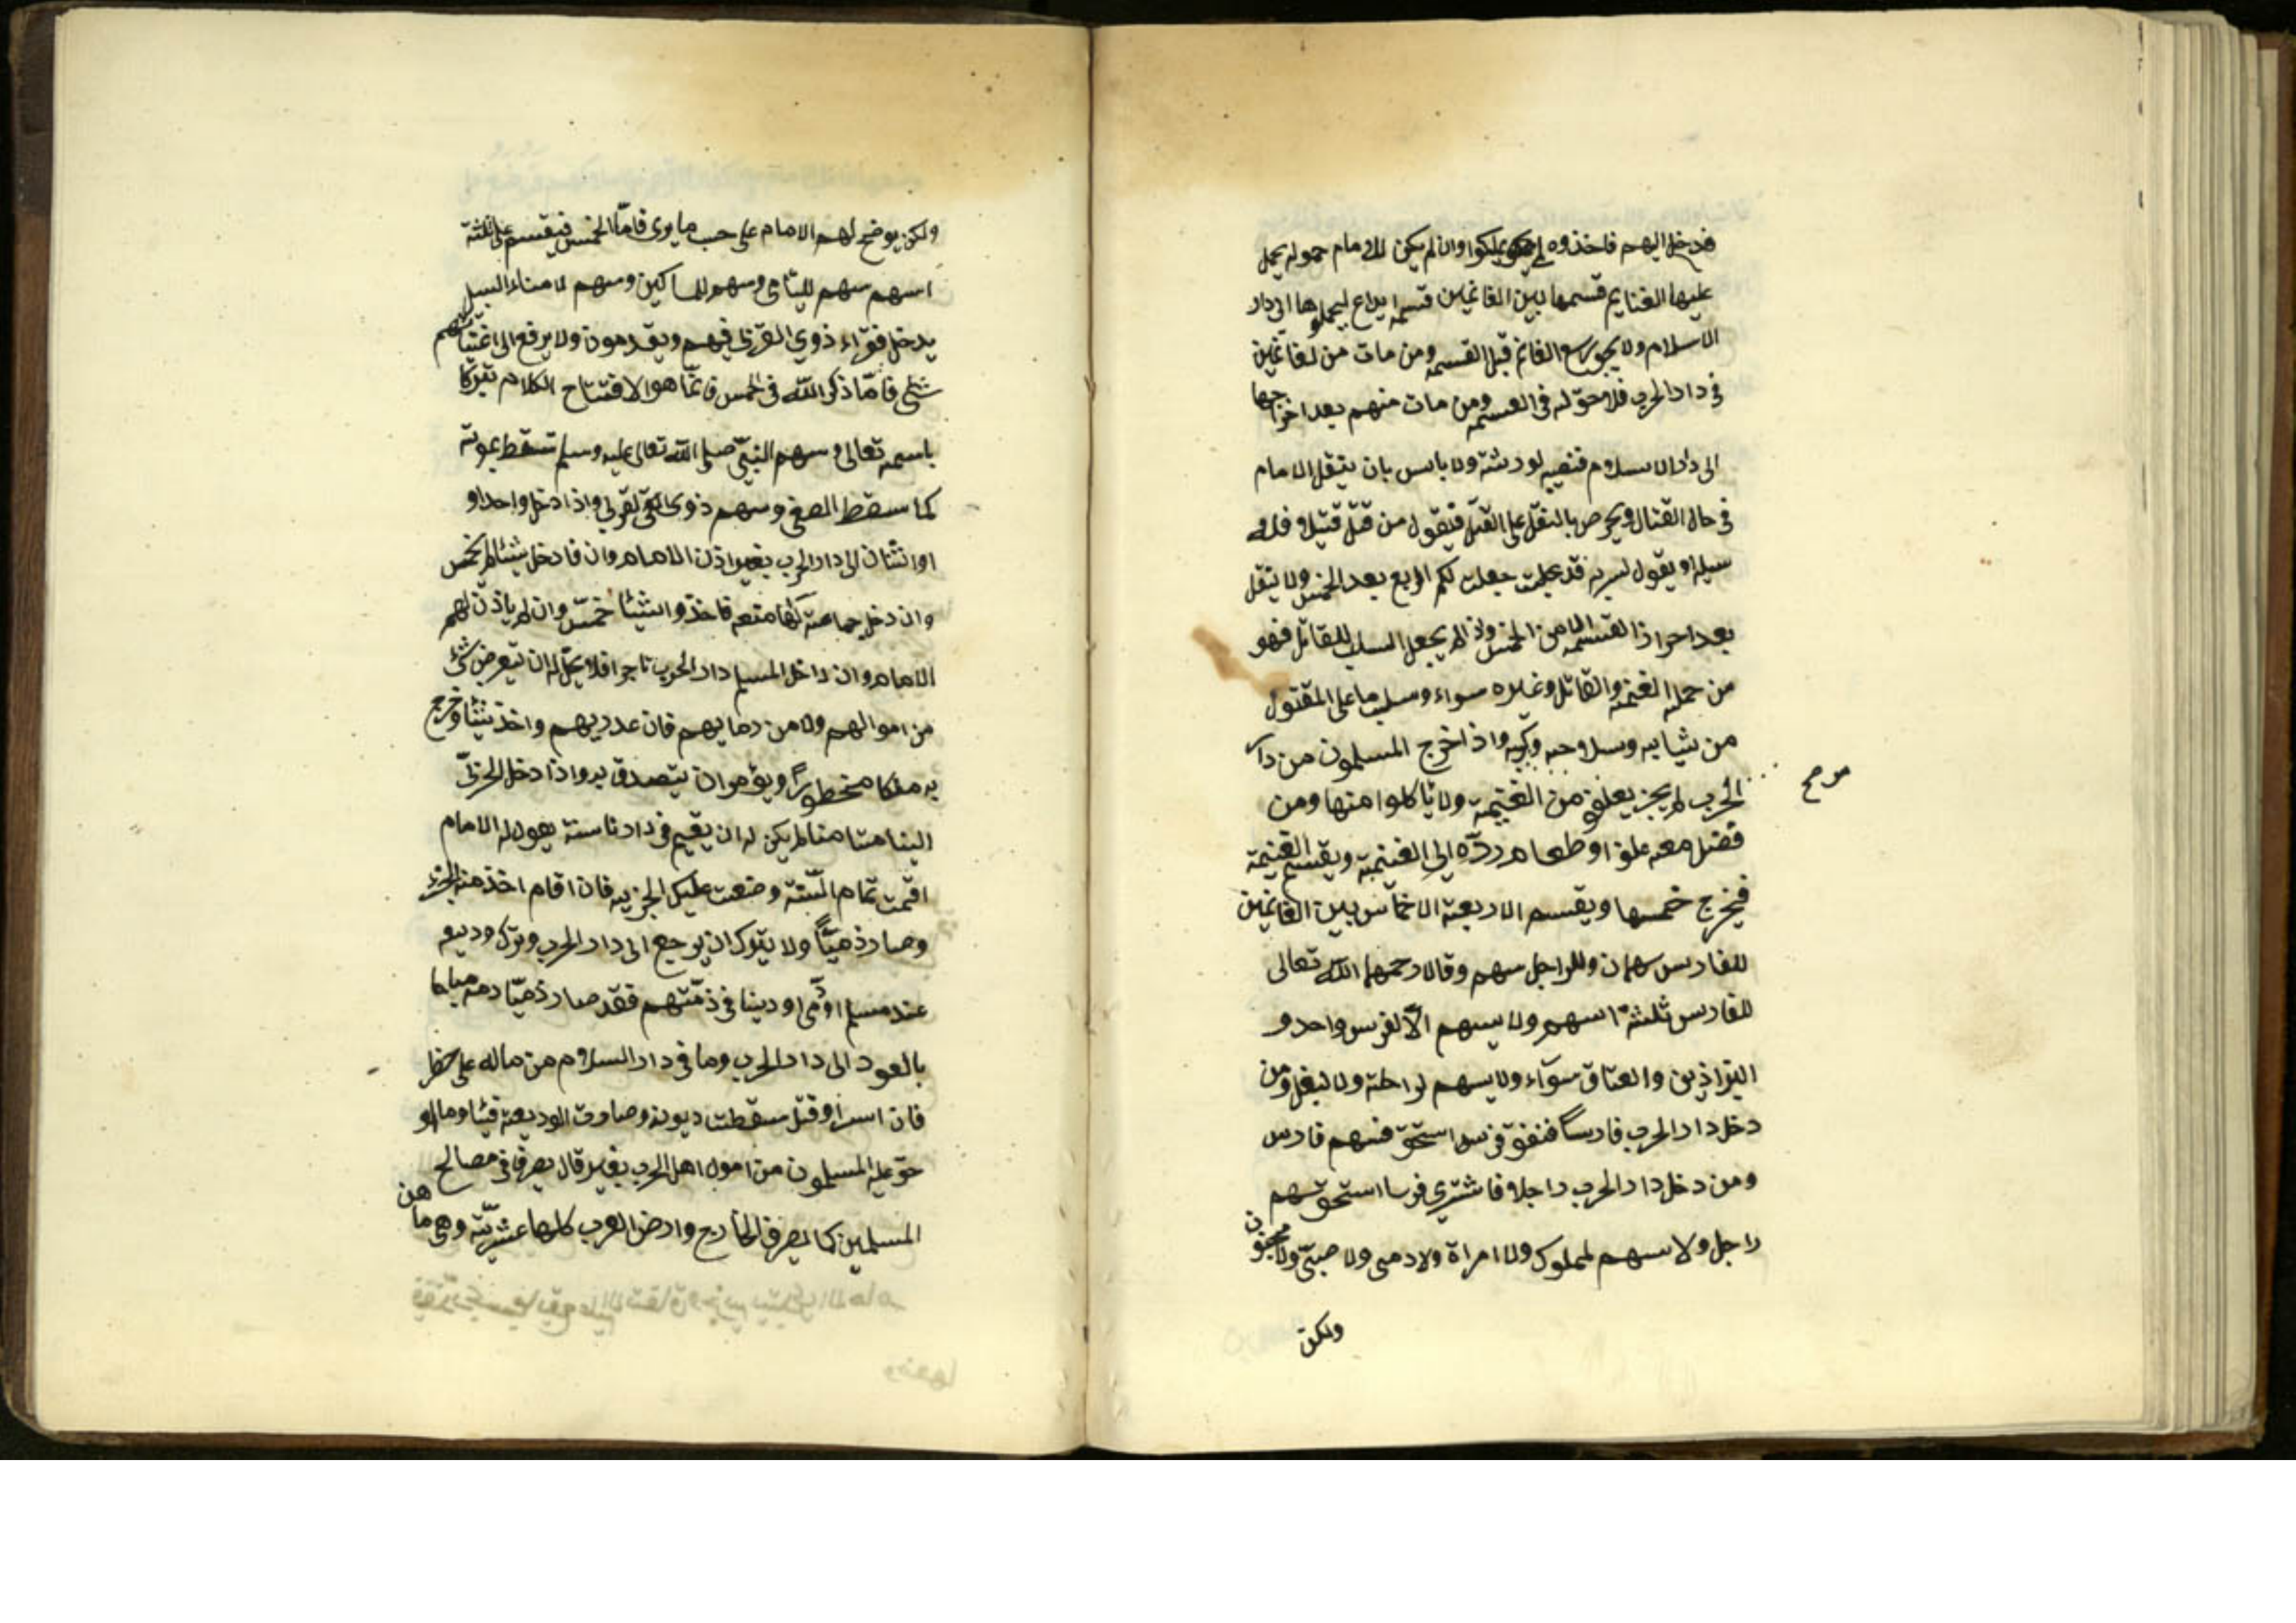 فدخل اليهم فاخذوه لم يملكوا وان لم يكن للامام حمولة يحمل
عليها الغنايم قسمها بين الغانمين قسمة ايداع ليحملوها الى دار
الاسلام ولا يجوز بيع الغانم قبل القسمة ومن مات من لغانمين
فى دار الحرب فلا حق له فى القسمة ومن مات منهم بعد اخراجها
الى دار الاسلام فنصيبه لورثته ولا باس بان ينقل الامام
فى حال القتال ويحرص بالنقل على القتل فيقول من قتل قتيلا فله
سبله او يقول لسرية قد جعلت لكم الربع بعد الخمس ولا ينقل
بعد احراز القسمة الا من الخمس واذا لم يجعل السلب للقاتل فهو
من جملة الغنيمة والقاتل وغيره سواء وسلب ما على المقتول
من ثيابه وسلاحه ومركبه واذا خرج المسلمون من دار
الحرب لم يجز يعلفو من الغنيمة ولا ياكلوا منها ومن
مر صح
فضل معه علفا او طعام رده الى الغنيمة ويقسم الغنيمة
فيخرج خمسها ويقسم الاربعة الاخماس بين الغانمين
للفارس سهمان وللراجل سهم وقالا رحمهما الله تعالى
للفارس ثلثة اسهم ولا يسهم الا لفرس واحد و
البراذين والعتاق سواء ولا يسهم لراحلة ولا لبغل ومن
دخل دار الحرب فارسا فنفق فرسه استحق فسهم فارس
ومن دخل دار الحرب راجلا فاشترى فرسا استحق سهم
راجل ولا سهم لمملوك ولا امراة ولا دمى ولا صبى ولا مجنون
ولكن
ولكن يوضح لهم الامام على حسب ما يرى فاما الخمس فيقسم على ثلثة
اسهم سهم لليتامى وسهم للمساكين وسهم لابناء السبيل
يدخل فقراء ذوى القربى فيهم ويقدمون ولا يرفع الى اغنيائهم
شئ فاما ذكر الله فى الخمس فانما هو الافتتاح الكلام تبركا
باسمه تعالى وسهم النبى صلى الله تعالى عليه وسلم تسقط بموته
كما سقط الصفى وسهم ذوى القربى واذا دخل واحد او
او اثنان الى دار الحرب بغير اذن الامام وان فادخل شيئا لم يخمس
وان دخل جماعة لها منعة فاخذوا شيئا خمس وان لم ياذن لهم
الامام وان داخل المسلم دار الحرب تاجرا فلا يحل له ان يتعرض شئ
من اموالهم ولا من دمايهم فان غدر بهم واخذ شيئا وخرج
به ملكا محظورا ويؤمر ان يتصدق به واذا دخل الحربى
الينا مستامنا لم يكن له ان يقيم فى دارنا سنة يقول له الامام
اقمت تمام السنة وضعت عليك الجزية فان اقام اخذ منه الجزية
وصار ذميا ولا يترك ان يرجع الى دار الحرب وترك وديعه
عند مسلم او ذمى او دينا فى ذمتهم فقد صار ذميا دمه مباحا
بالعود الى دار الحرب وما فى دار السلام من ماله على خطر
فان اسر او قتل سقطت ديونه وصارت الوديعة فيئا وما او
حق عليه المسلمون من امول اهل الحرب بغير قال يصرف فى مصالح
المسلمين كما يصرف الخارج وارض العرب كلها عشرية وهى ما من